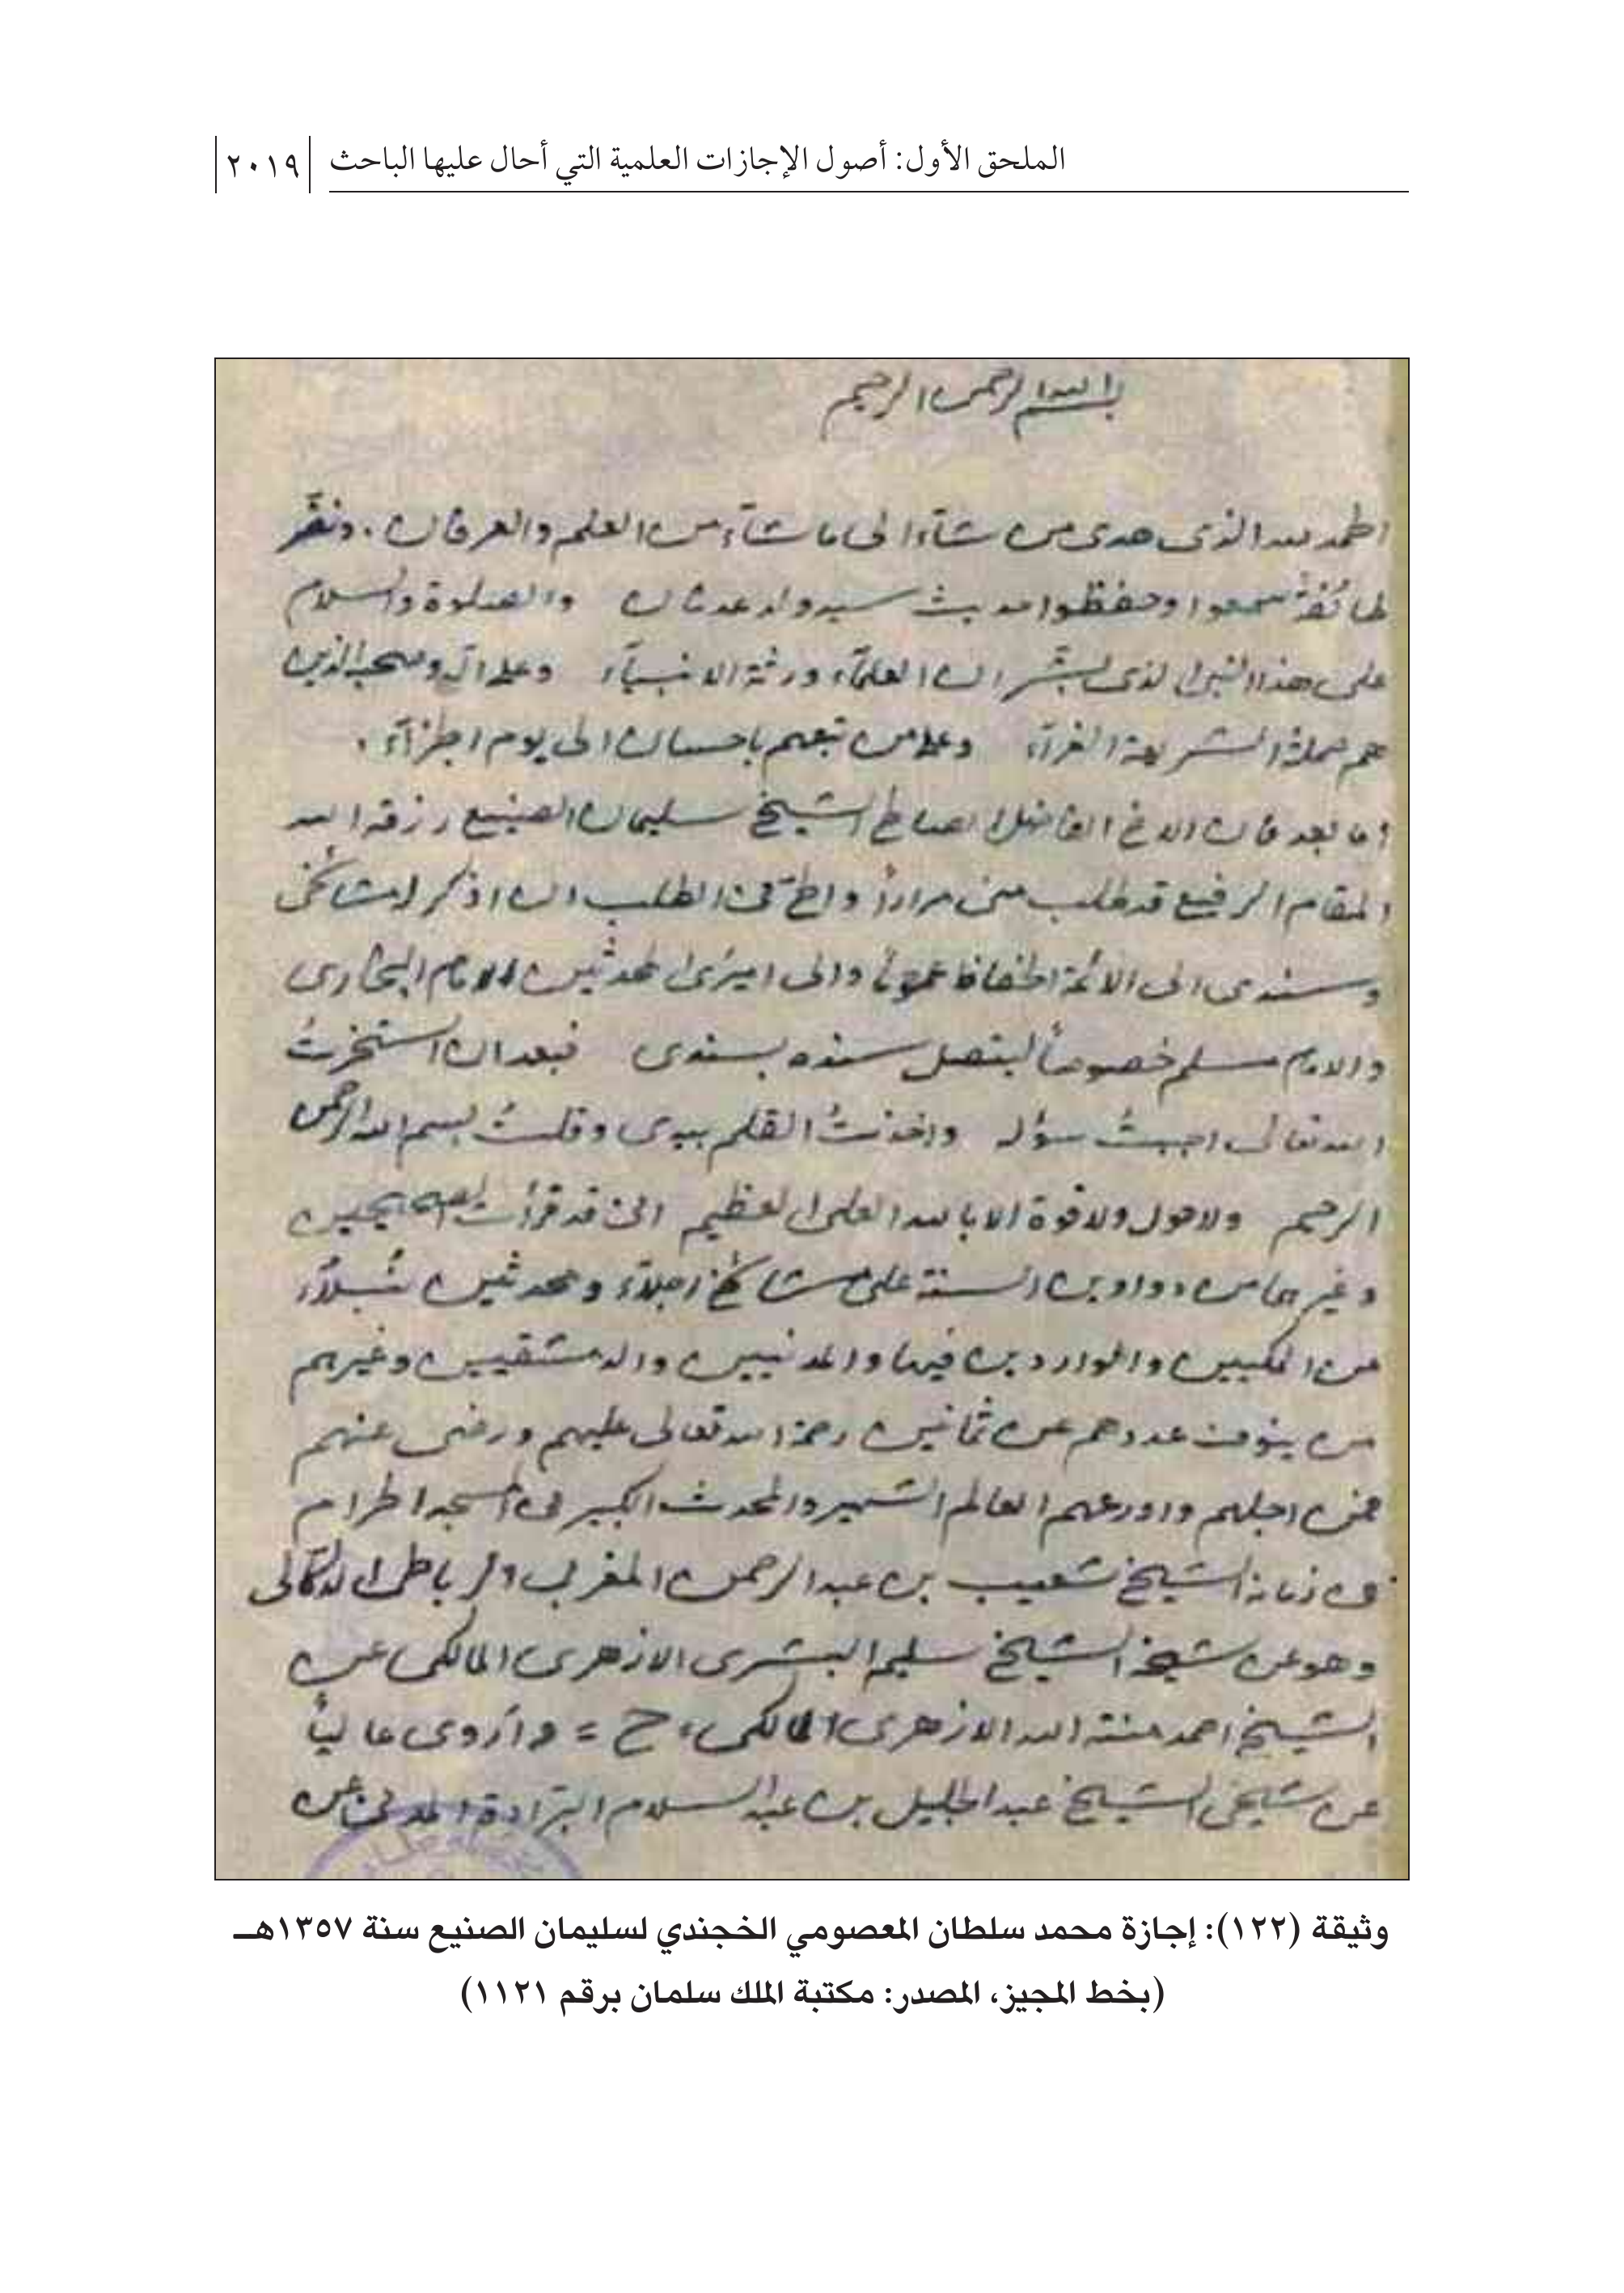 الملحق الأول: أصول الإجازات العلمية التي أحال عليها الباحث ٢٠١٩
بسم الله الرحمن الرحيم
الحمد لله الذى هدى من شآء الى ما شآء من العلم والعرفان . ونضّر
طائفة سمعوا وحفظوا حديث سيد ولد عدنان والصلوة والسلام
على هذا النبى الذى بشّر ان العلمآء ورثة الانبيآء وعلى آله وصحبه الذين
هم حملة الشريعة الغرآء وعلى من تبعهم باحسان الى يوم الجزآء .
اما بعد فان الاخ الفاضل الصالح الشيخ سليمان الصنيع رزقه الله
المقام الرفيع قد طلب منى مراراً والحّ فى الطلب ان اذكر له مشائخى
وسندى الى الائمة الحفاظ عموماً والى اميرى المحدثين الامام البخارى
والامام مسلم خصوصاً ليتصل سنده بسندى فبعد ان استخرتُ
الله تعالى اجبتُ سؤله واخذتُ القلم بيدى وقلتُ بسم الله الرحمن
الرحيم ولا حول ولا قوة الا بالله العلى العظيم انى قد قرأت الصحيحين
وغيرهما من دواوين السنة على مشائخ اجلآء ومحدثين نُبلآء
من المكيين والواردين فيها والمدنيين والدمشقيين وغيرهم
من ينوف عددهم عن ثمانين رحمة الله تعالى عليهم ورضى عنهم
فمن اجلهم واورعهم العالم الشهير والمحدث الكبير فى المسجد الحرام
فى زمانه الشيخ شعيب بن عبد الرحمن المغربى الرباطى الدكالى
وهو عن شيخه الشيخ سليم البشرى الازهرى المالكى عن
الشيخ احمد منة الله الازهرى المالكى، ح = وأروى عالياً
عن شيخى الشيخ عبد الجليل بن عبد السلام البرّادة المدنى عن
وثيقة (١٢٢): إجازة محمد سلطان المعصومي الخجندي لسليمان الصنيع سنة ١٣٥٧هـ
(بخط المجيز، المصدر: مكتبة الملك سلمان برقم ١١٢١)